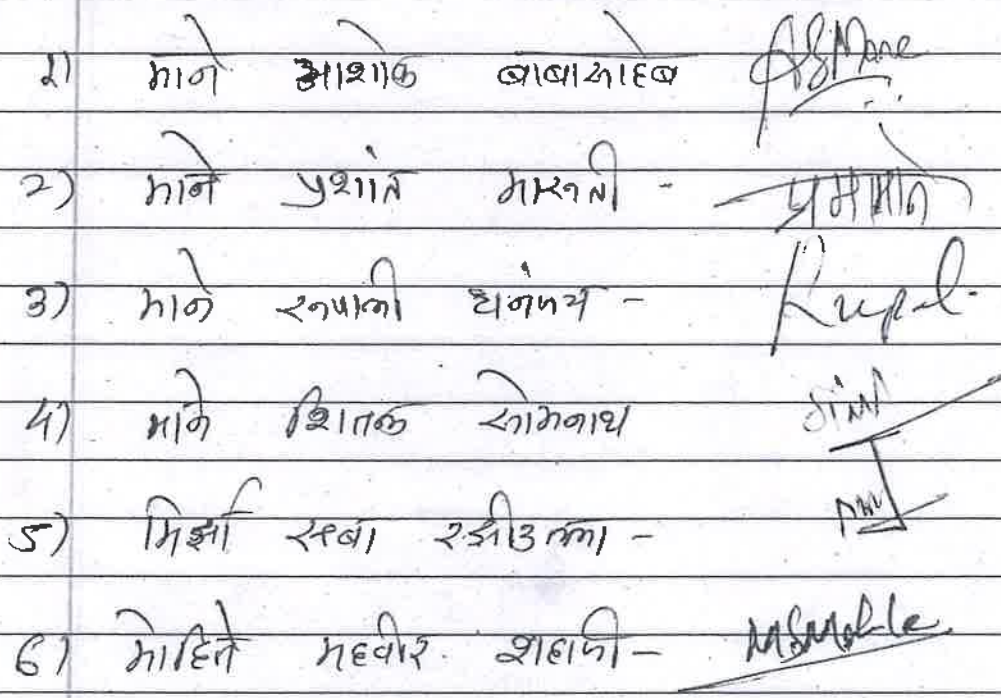 १) माने अशोक बाबासाहेब ASMane
२) माने प्रशांत मारूती - प्रमामाने
३) माने रूपाली धनंजय - Rupal
४) माने शितल सोमनाथ
५) मिर्झा रझीउल्ला -
६) मोहिते महवीर शहाजी - MSMohite